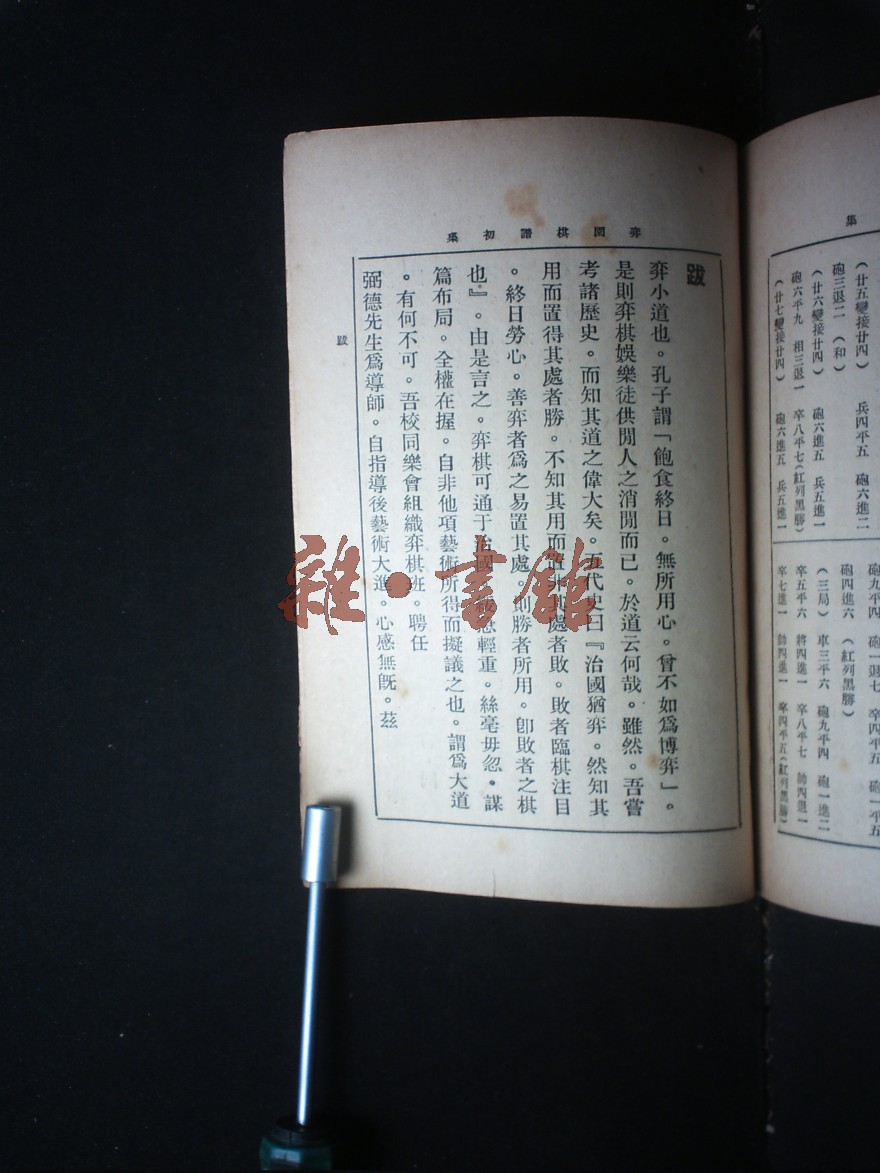 集
(廿五變接廿四) 兵四平五 砲六進二
砲三退二 (和)
(廿六變接廿四) 砲六進五 兵五進一
砲六平九 相三退一 卒八平七(紅列黑勝)
(廿七變接廿四) 砲六進五 兵五進一
砲九平四 砲一退七 卒四平五 砲一平五
砲四進六 (紅列黑勝)
(三局) 車三平六 砲九平四 砲一進二
卒五平六 將四進一 卒八平七 帥四退一
卒七進一 帥四進一 卒四平五(紅列黑勝)
弈園棋譜初集
跋
弈小道也。孔子謂「飽食終日。無所用心。曾不如爲博弈」。
是則弈棋娛樂徒供閒人之消閒而已。於道云何哉。雖然。吾嘗
考諸歷史。而知其道之偉大矣。五代史曰『治國猶弈。然知其
用而置得其處者勝。不知其用而置非其處者敗。敗者臨棋注目
。終日勞心。善弈者爲之易置其處。則勝者所用。卽敗者之棋
也』。由是言之。弈棋可通于治國 輕重。絲毫毋忽。謀
篇布局。全權在握。自非他項藝術所得而擬議之也。謂爲大道
。有何不可。吾校同樂會組織弈棋班。聘任
弼德先生爲導師。自指導後藝術大進。心感無旣。茲
跋
雜·書館